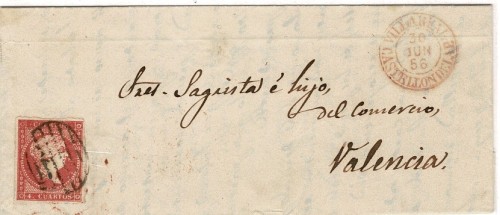 VILLARREAL
30
JUN
56
CASTELLON
Sres. Sagrista é hijo,
del Comercio,
Valencia.
4 CUARTOS